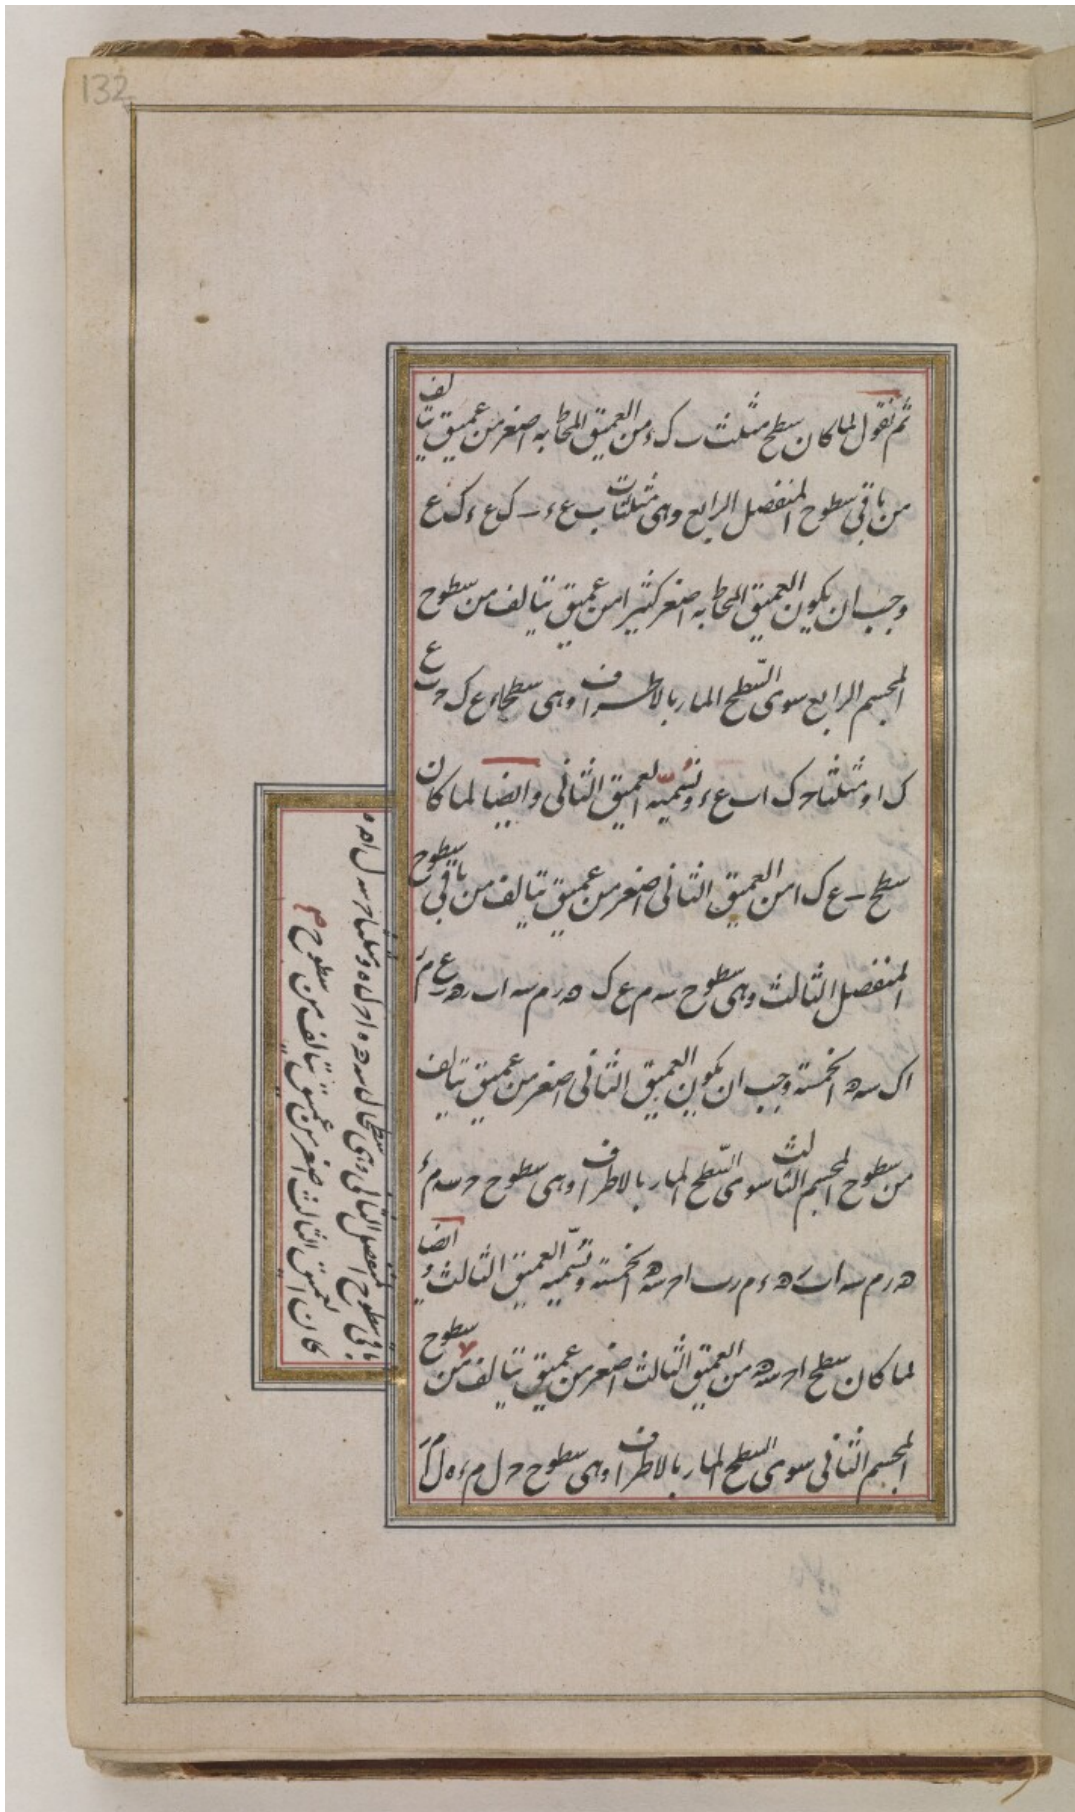 132
ثم نقول لما كان سطح مثلث ب ك ء من العميق المحاط به اصغر من عميق يتالف
من باقى سطوح المنفصل الرابع وهى مثلثات ب ع ء ب ك ع ء ك ع
وجب ان يكون العميق المحاط به اصغر كثيرا من عميق يتالف من سطوح
المجسم الرابع سوى السّطح المار بالاطراف وهى سطحا ء ع ك ح ب ع
ك ا ومثلثا ح ك ا ب ع ء ونسميّه العميق الثانى وايضا لما كان
سطح ب ع ك ا من العميق الثانى اصغر من عميق يتالف من باقى سطوح
المنفصل الثالث وهى سطوح سه م ع ك ه ر م سه ا ب ر ه ع م
ا ك سه ه الخمسة وجب ان يكون العميق الثانى اصغر من عميق يتالف
من سطوح المجسم الثالث سوى السّطح المار بالاطراف وهى سطوح ح سه م ء
ه ر م سه ا ب ر ه ء م ر ب ا ح سه ه الخمسة ونسّميه العميق الثالث وايضا
لما كان سطح ا ح سه ه من العميق الثالث اصغر من عميق يتالف من سطوح
المجسم الثانى سوى السطح المار بالاطراف وهى سطوح ح ل م ء ه ل م ر
باقى سطوح المنفصل الثانى وهى سطحا ل سه ه ه ا ح ل ه ومثلثا ح سه ل ا م ه
كان العميق الثالث اصغر من عميق يتالف من سطوح م